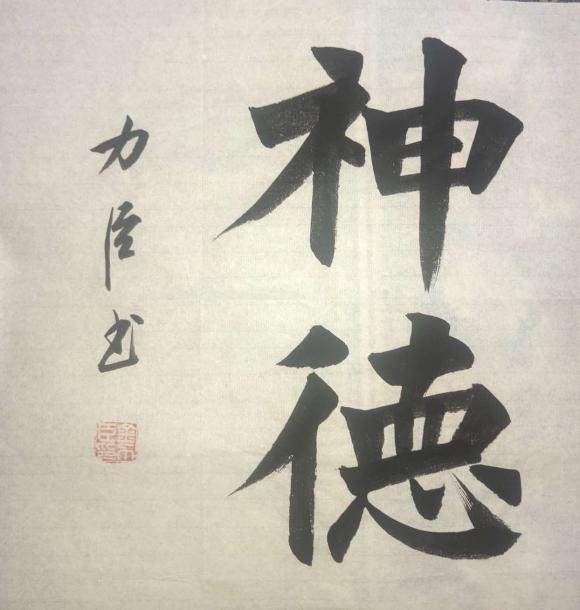 神德
力臣书